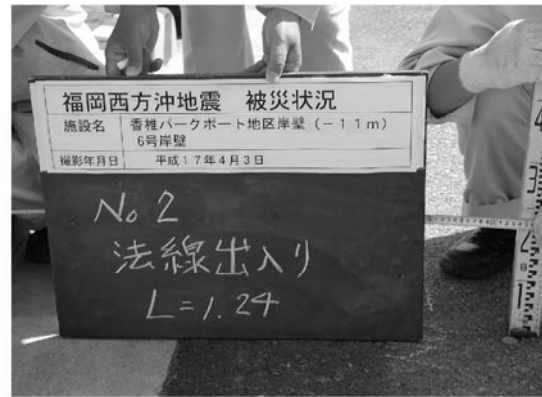 福岡西方沖地震 被災状況
施設名 香椎パークポート地区岸壁(-11m)
6号岸壁
撮影年月日 平成17年4月3日
No 2
法線出入り
L=1.24
4
3
2
1